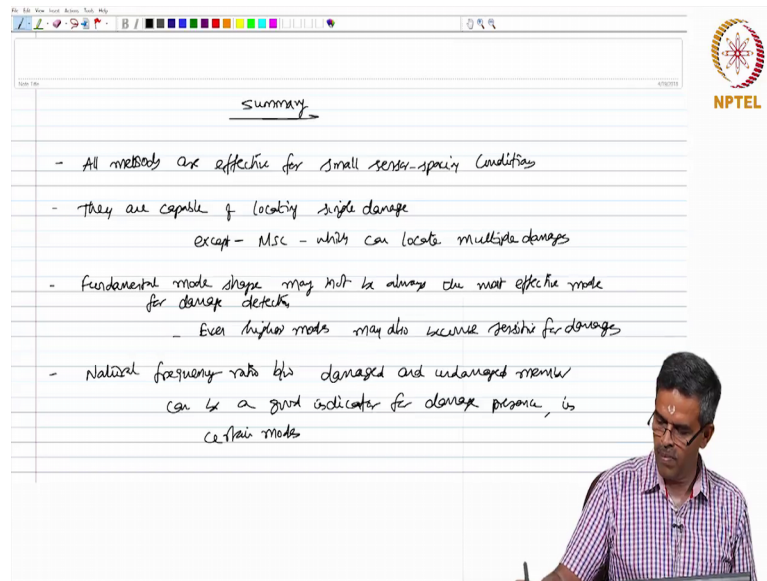 File Edit View Insert Actions Tools Help
B I
Note Title
4/19/2018
NPTEL
Summary
- All methods are effective for small sensor-spacing conditions
- They are capable of locating single damage
except - MSC - which can locate multiple damages
- Fundamental mode shape may not be always the most effective mode
for damage detection
- Even higher modes may also become sensitive for damages
- Natural frequency ratio b/w damaged and undamaged member
can be a good indicator for damage presence, in
certain modes